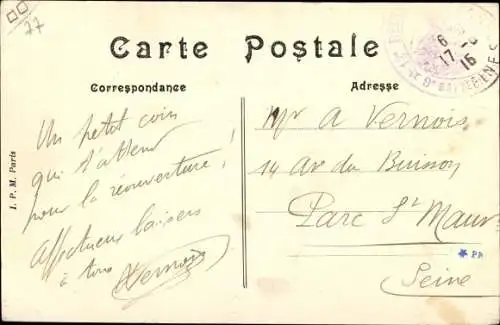 77
Carte Postale
Correspondance
Adresse
Un petit coin
qui t'attend
pour la réouverture !
Affectueux baisers
à tous Vernois
Mr A Vernois
14 Av du Buisson
Parc St Maur
Seine
I. P. M. Paris
6
17 15
* PR